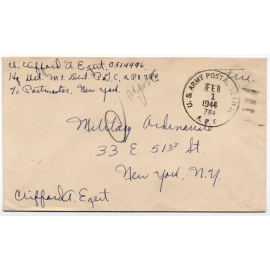 Lt. Clifford A. Egert, 0514496
Hq. Det. M.T. Dect. P.B.C. A.P.O. 782
℅ Postmaster, New york.
U.S. ARMY POSTAL SERVICE
FEB
1
1944
782
A.P.O.
Free
Military Ordinariate
33 E. 51 ST St.
New York, N.Y.
Clifford A. Egert